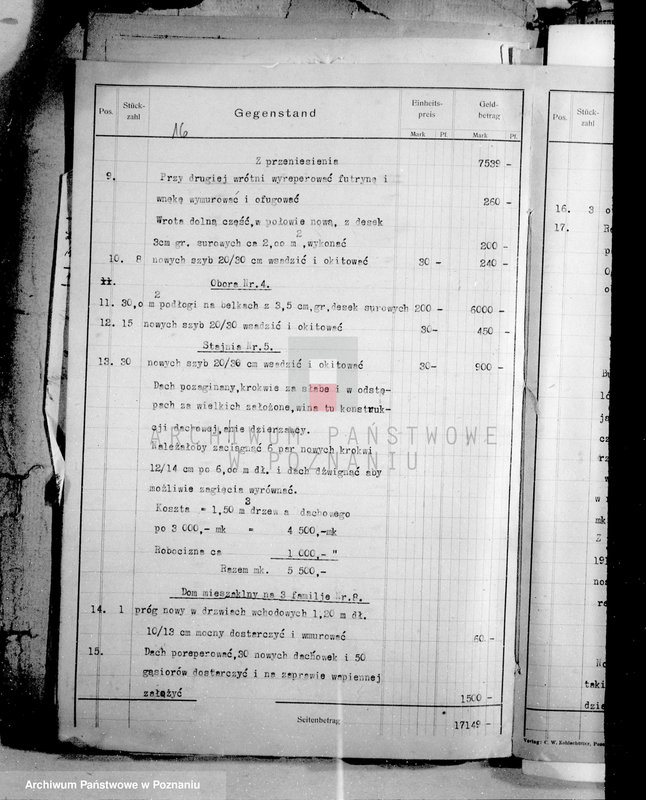 Pos. Stück-zahl Gegenstand Einheits-preis Geld-betrag
Mark Pf. Mark Pf.
16
Z przeniesienia 7539 -
9. Przy drugiej wrótni wyreperować futrynę i
wnękę wymurować i ofugować 260 -
Wrota dolną część, w połowie nową, z desek
3cm gr. surowych ca 2,oo m2, wykonać 200 -
10. 8 nowych szyb 20/30 cm wsadzić i okitować 30 - 240 -
11. Obora Nr.4.
11. 30,o m2 podłogi na belkach z 3,5 cm,gr,desek surowych 200 - 6000 -
12. 15 nowych szyb 20/30 wsadzić i okitować 30- 450 -
Stajnia Nr.5.
13. 30 nowych szyb 20/30 cm wsadzić i okitować 30- 900 -
Dach pozaginany,krokwie za słabe i w odstę-
pach za wielkich założone,wina tu konstruk-
cji dachowej,anie dzierzawcy.
Należałoby zaciągnąć 6 par nowych krokwi
12/14 cm po 6,oo m dł. i dach dźwignąć aby
możliwie zagięcia wyrównać.
Koszta = 1,50 m3 drzewa dachowego
po 3 000,- mk = 4 500,-mk
Robocizna ca 1 000,- "
Razem mk. 5 500,-
Dom mieszaklny na 3 familje Nr.8.
14. 1 próg nowy w drzwiach wchodowych 1,20 m dł.
10/13 cm mocny dostarczyć i wmurować 60 -
15. Dach poreperować,30 nowych dachówek i 50
gąsiorów dostarczyć i na zaprawie wapiennej
założyć 1500 -
Seitenbetrag 17149 -
Pos. Stück-zahl
16. 3
17.
taki
dzie
Verlag: C. W. Kohlschütter, Pose
ARCHIWUM PAŃSTWOWE
W POZNANIU
Archiwum Państwowe w Poznaniu